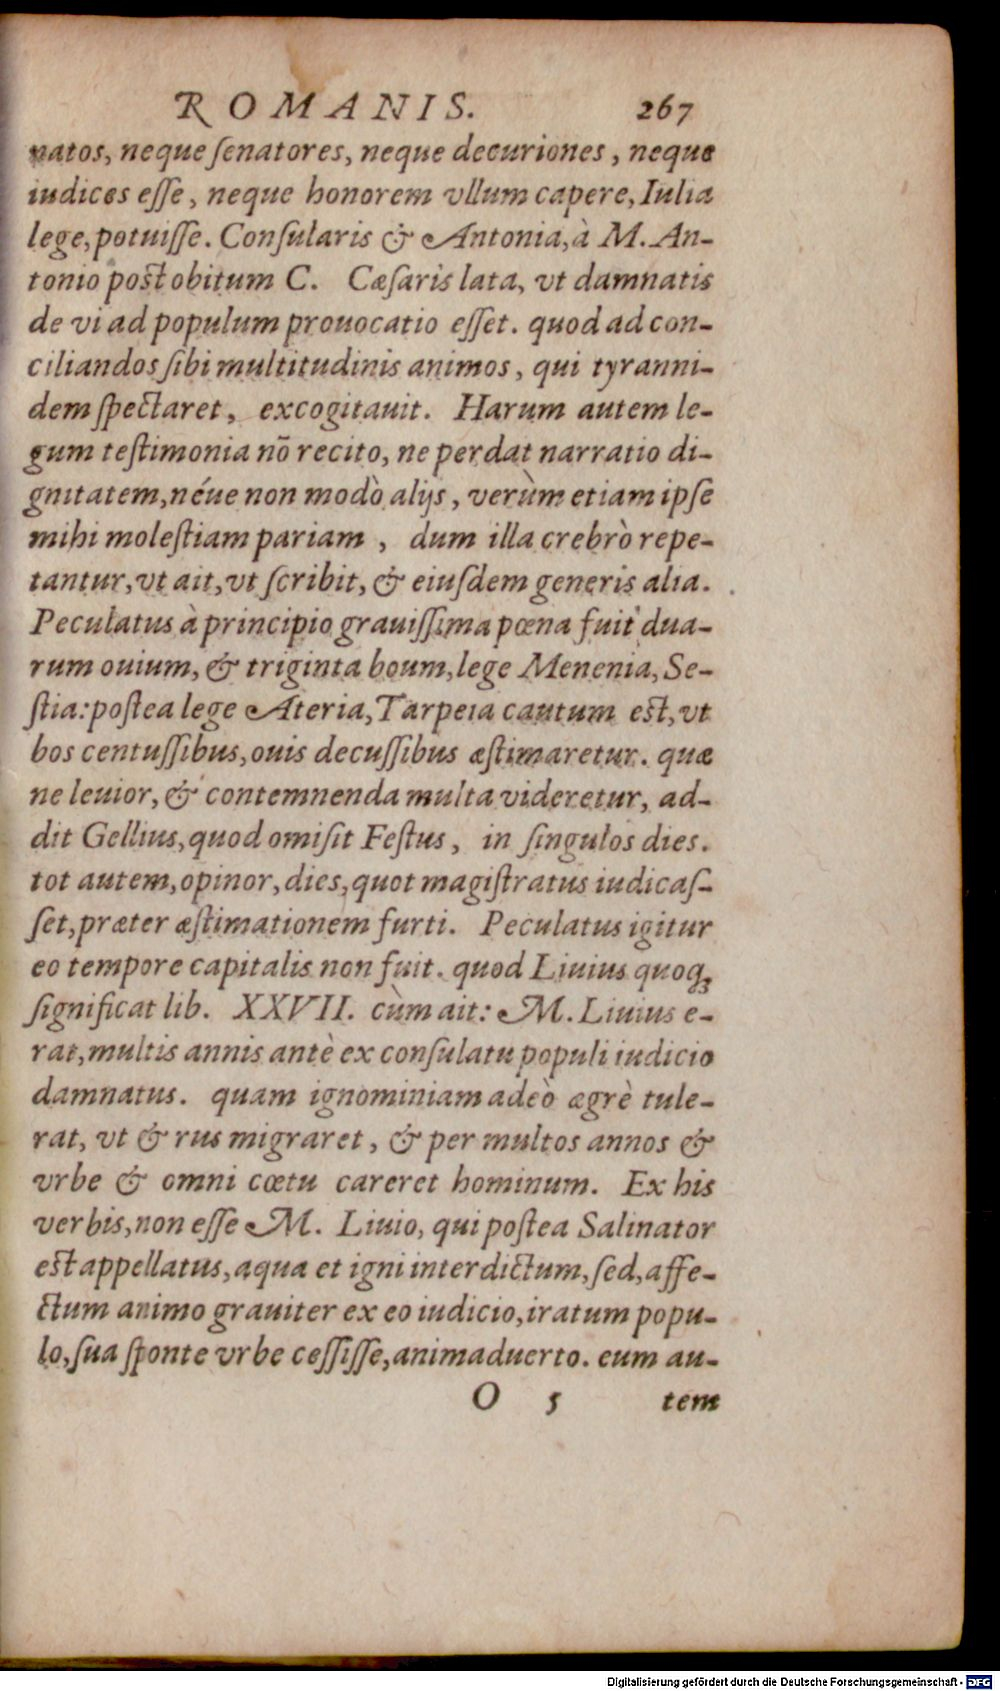 ROMANIS. 267
natos, neque ſenatores, neque decuriones, neque
iudices eſſe, neque honorem vllum capere, Iulia
lege, potuiſſe. Conſularis & Antonia, à M. An-
tonio poſt obitum C. Cæſaris lata, vt damnatis
de vi ad populum prouocatio eſſet. quod ad con-
ciliandos ſibi multitudinis animos, qui tyranni-
dem ſpectaret, excogitauit. Harum autem le-
gum teſtimonia nõ recito, ne perdat narratio di-
gnitatem, néue non modò alijs, verùm etiam ipſe
mihi moleſtiam pariam, dum illa crebrò repe-
tantur, vt ait, vt ſcribit, & eiuſdem generis alia.
Peculatus à principio grauiſſima pœna fuit dua-
rum ouium, & triginta boum, lege Menenia, Se-
ſtia: poſtea lege Ateria, Tarpeia cautum eſt, vt
bos centuſſibus, ouis decuſſibus æſtimaretur. quæ
ne leuior, & contemnenda multa videretur, ad-
dit Gellius, quod omiſit Feſtus, in ſingulos dies.
tot autem, opinor, dies, quot magiſtratus iudicaſ-
ſet, præter æſtimationem furti. Peculatus igitur
eo tempore capitalis non fuit. quod Liuius quoq;
ſignificat lib. XXVII. cùm ait: M. Liuius e-
rat, multis annis antè ex conſulatu populi iudicio
damnatus. quam ignominiam adeò ægrè tule-
rat, vt & rus migraret, & per multos annos &
vrbe & omni cœtu careret hominum. Ex his
verbis, non eſſe M. Liuio, qui poſtea Salinator
eſt appellatus, aqua et igni interdictum, ſed, affe-
ctum animo grauiter ex eo iudicio, iratum popu-
lo, ſua ſponte vrbe ceſſiſſe, animaduerto. eum au-
O 5 tem
Digitalisierung gefördert durch die Deutsche Forschungsgemeinschaft - DFG